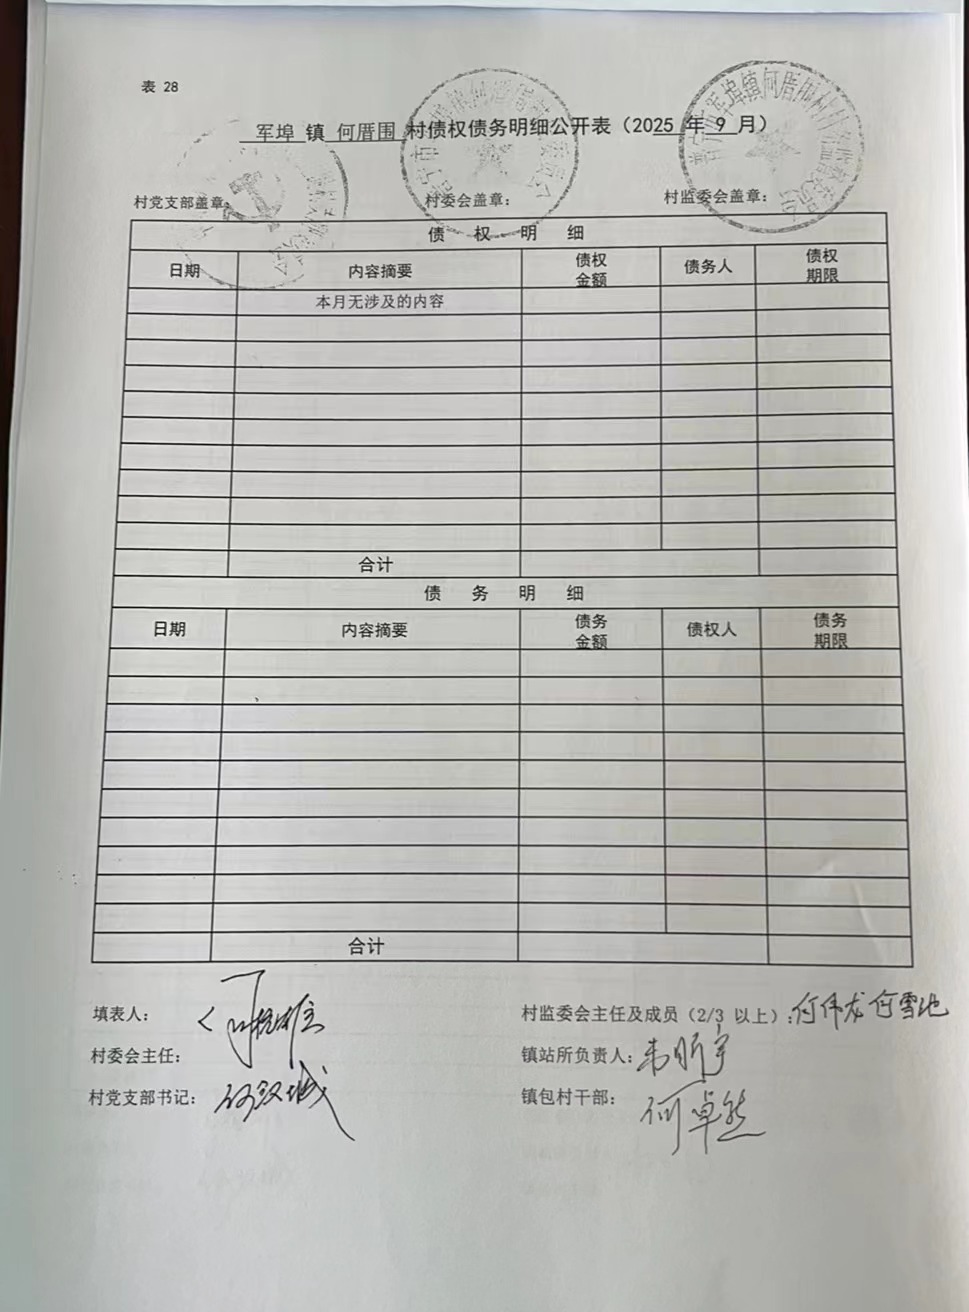 表 28
军埠 镇 何厝围 村债权债务明细公开表（2025 年 9 月）
村党支部盖章: 村委会盖章: 村监委会盖章:
债 权 明 细
日期 内容摘要 债权金额 债务人 债权期限
本月无涉及的内容
合计
债 务 明 细
日期 内容摘要 债务金额 债权人 债务期限
合计
填表人: 村监委会主任及成员（2/3 以上）: 何伟龙 何雪地
村委会主任: 镇站所负责人:
村党支部书记: 镇包村干部: 何卓然